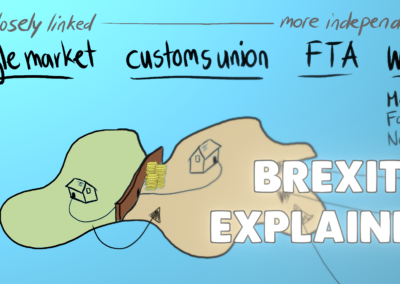 closely linked more independ
gle market customs union FTA W
BREXIT
EXPLAINE